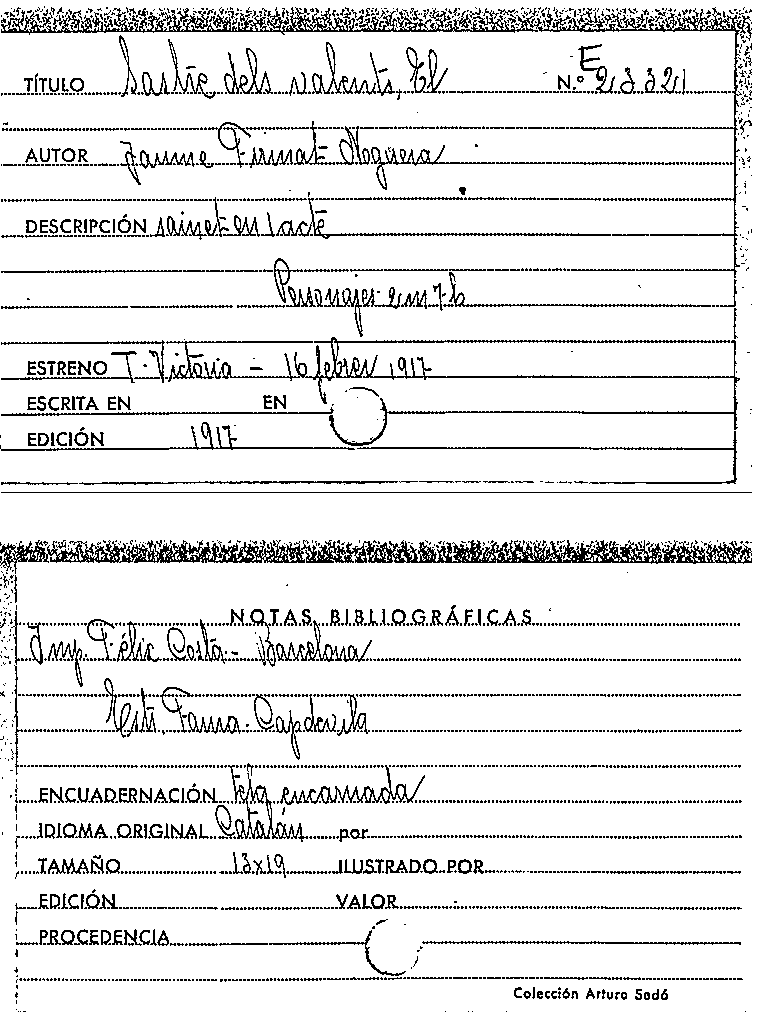 TÍTULO Sastre dels valents, El E N.º 23321
AUTOR Jaume Firmat Noguera
DESCRIPCIÓN sainet en 1 acte
Personajes 2 m 7 h
ESTRENO T. Victoria - 16 febrer 1917
ESCRITA EN EN
EDICIÓN 1917
NOTAS BIBLIOGRÁFICAS
Imp. Fèlix Costa - Barcelona
Estr. Fama. Capdevila
ENCUADERNACIÓN tela encarnada
IDIOMA ORIGINAL Catalán por
TAMAÑO 13x19 ILUSTRADO POR
EDICIÓN VALOR
PROCEDENCIA
Colección Arturo Sedó